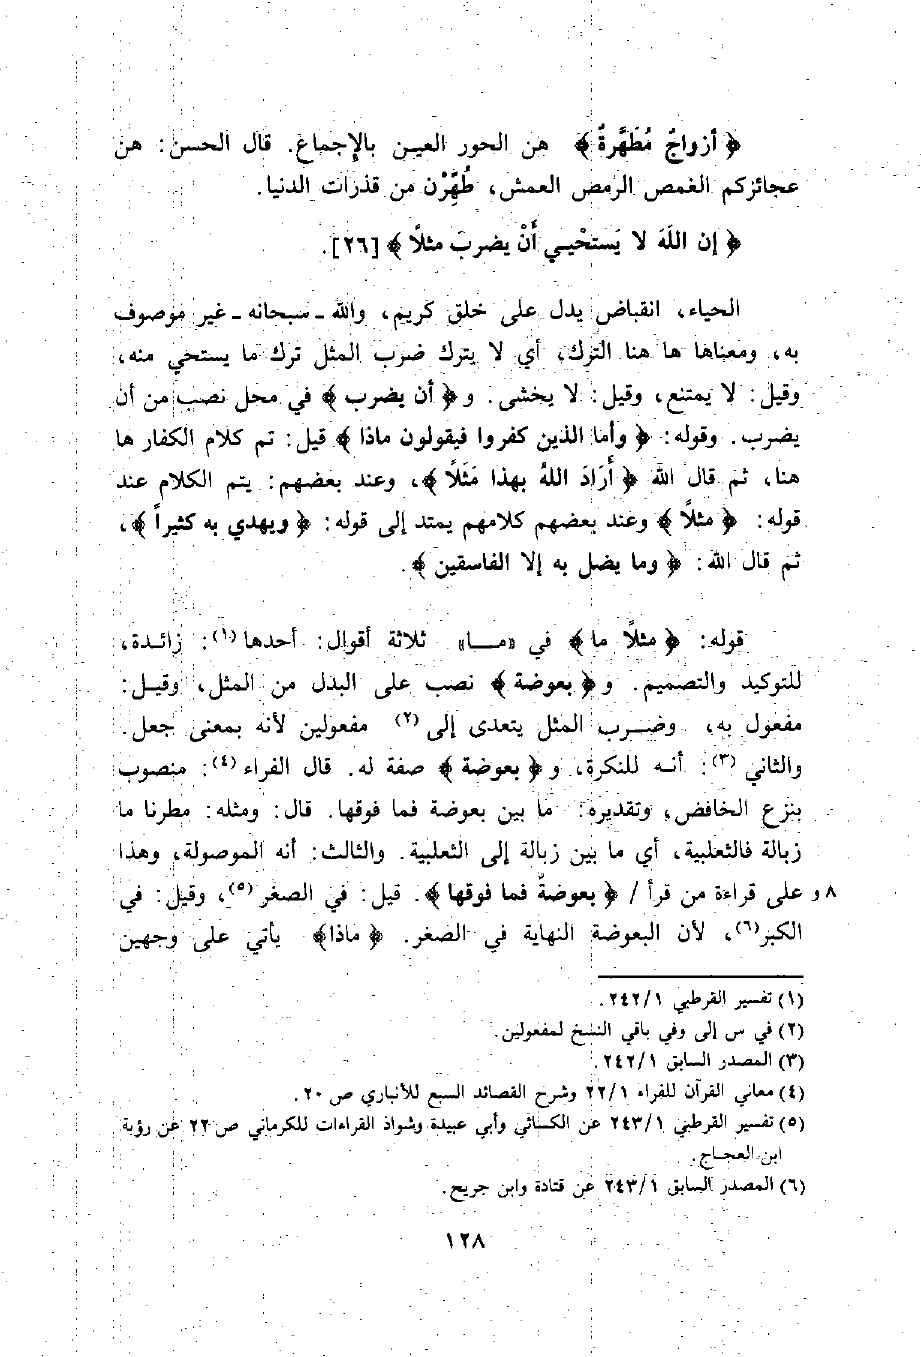 ﴿ أزواجٌ مُطَهَّرةٌ ﴾ هن الحور العين بالإجماع. قال الحسن: هن
عجائزكم الغمص الرمص العمش، طُهِّرْن من قذرات الدنيا.
﴿ إن اللَهَ لا يَستحْيي أَنْ يضربَ مثلاً ﴾ [٢٦].
الحياء، انقباض يدل على خلق كريم، والله ـ سبحانه ـ غير موصوف
به، ومعناها ها هنا الترك، أي لا يترك ضرب المثل ترك ما يستحي منه،
وقيل: لا يمتنع، وقيل: لا يخشى. و ﴿ أن يضرب ﴾ في محل نصب من أن
يضرب. وقوله: ﴿ وأما الذين كفروا فيقولون ماذا ﴾ قيل: تم كلام الكفار ها
هنا، ثم قال الله ﴿ أَرَادَ اللهُ بهذا مَثَلاً ﴾، وعند بعضهم: يتم الكلام عند
قوله: ﴿ مثلاً ﴾ وعند بعضهم كلامهم يمتد إلى قوله: ﴿ ويهدي به كثيراً ﴾،
ثم قال الله: ﴿ وما يضل به إلا الفاسقين ﴾.
قوله: ﴿ مثلاً ما ﴾ في «مـا» ثلاثة أقوال: أحدها (١): زائدة،
للتوكيد والتصميم. و ﴿ بعوضة ﴾ نصب على البدل من المثل، وقيل:
مفعول به، وضرب المثل يتعدى إلى (٢) مفعولين لأنه بمعنى جعل.
والثاني (٣): أنه للنكرة، و ﴿ بعوضة ﴾ صفة له. قال الفراء (٤): منصوب
بنزع الخافض، وتقديره: ما بين بعوضة فما فوقها. قال: ومثله: مطرنا ما
زبالة فالثعلبية، أي ما بين زبالة إلى الثعلبية. والثالث: أنه الموصولة، وهذا
٨ و على قراءة من قرأ / ﴿ بعوضةٌ فما فوقها ﴾. قيل: في الصغر (٥)، وقيل: في
الكبر (٦)، لأن البعوضة النهاية في الصغر. ﴿ ماذا ﴾ يأتي على وجهين
(١) تفسير القرطبي ٢٤٢/١.
(٢) في س إلى وفي باقي النسخ لمفعولين.
(٣) المصدر السابق ٢٤٢/١.
(٤) معاني القرآن للفراء ٢٢/١ وشرح القصائد السبع للأنباري ص ٢٠.
(٥) تفسير القرطبي ٢٤٣/١ عن الكسائي وأبي عبيدة وشواذ القراءات للكرماني ص ٢٢ عن رؤبة
ابن العجاج.
(٦) المصدر السابق ٢٤٣/١ عن قتادة وابن جريح.
١٢٨